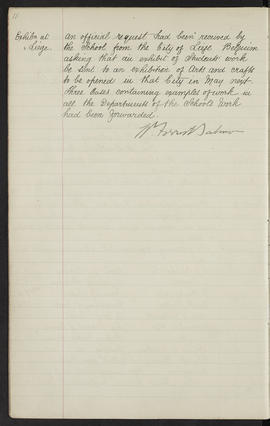 Exhibn at
Liege.
An official request had been received by
the School from the City of Leige Belgium
asking that an exhibit of students' work
be sent to an exhibition of Arts and crafts
to be opened in that City in May next
Three Cases containing examples of work in
all the Departments of the School's Work
had been forwarded.